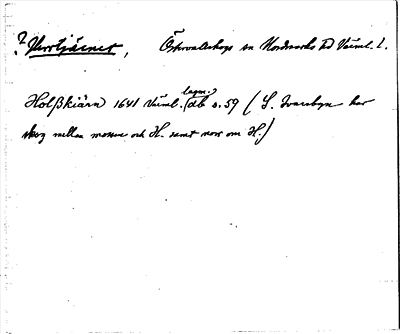 ? Horrtjärnet, Östervallskogs sn Nordmarks hd Värml. l.
Holßkiärn 1641 Värml. lagm. db s. 59 (S. Ivarsbyn har
skog mellan mossen och H. samt norr om H.)